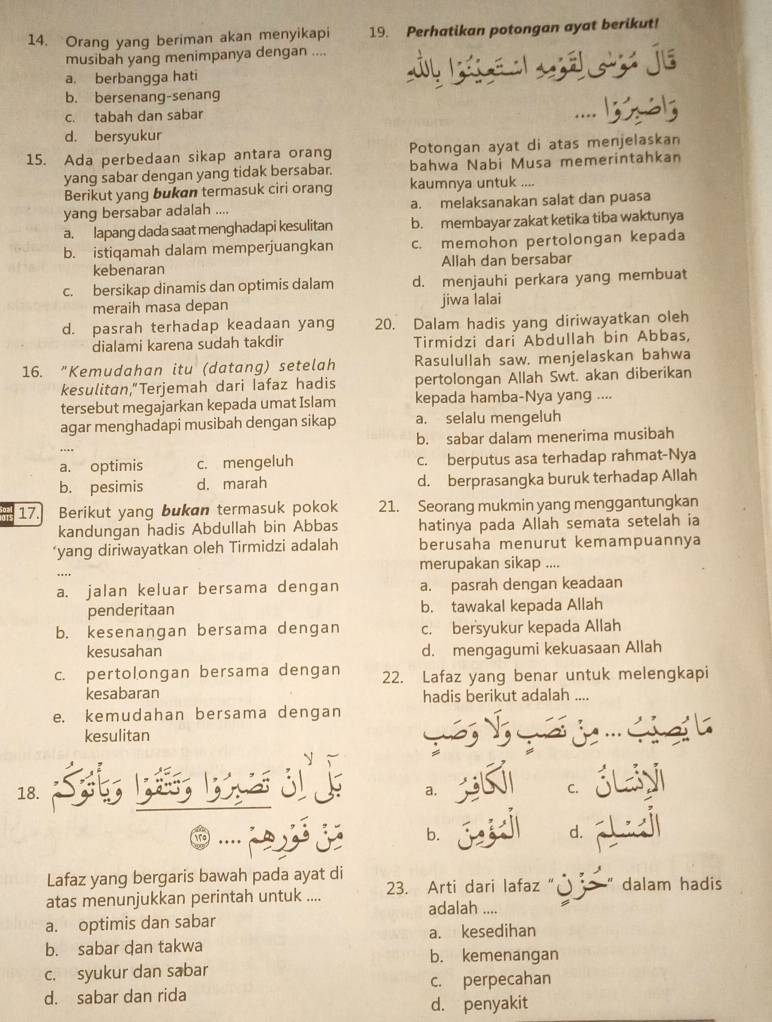 14. Orang yang beriman akan menyikapi
musibah yang menimpanya dengan ....
a. berbangga hati
b. bersenang-senang
c. tabah dan sabar
d. bersyukur
15. Ada perbedaan sikap antara orang
yang sabar dengan yang tidak bersabar.
Berikut yang bukan termasuk ciri orang
yang bersabar adalah ....
a. lapang dada saat menghadapi kesulitan
b. istiqamah dalam memperjuangkan
kebenaran
c. bersikap dinamis dan optimis dalam
meraih masa depan
d. pasrah terhadap keadaan yang
dialami karena sudah takdir
16. "Kemudahan itu (datang) setelah
kesulitan," Terjemah dari lafaz hadis
tersebut megajarkan kepada umat Islam
agar menghadapi musibah dengan sikap
....
a. optimis c. mengeluh
b. pesimis d. marah
17. Berikut yang bukan termasuk pokok
kandungan hadis Abdullah bin Abbas
yang diriwayatkan oleh Tirmidzi adalah
....
a. jalan keluar bersama dengan
penderitaan
b. kesenangan bersama dengan
kesusahan
c. pertolongan bersama dengan
kesabaran
e. kemudahan bersama dengan
kesulitan
18. بَلٰىٓ ۙ اِنْ تَصْبِرُوْا وَتَتَّقُوْا وَيَأْتُوْكُمْ
مِّنْ فَوْرِهِمْ .... ١٢٥
Lafaz yang bergaris bawah pada ayat di
atas menunjukkan perintah untuk ....
a. optimis dan sabar
b. sabar dan takwa
c. syukur dan sabar
d. sabar dan rida
19. Perhatikan potongan ayat berikut!
قَالَ مُوْسٰى لِقَوْمِهِ اسْتَعِيْنُوْا بِاللّٰهِ
وَاصْبِرُوْا ....
Potongan ayat di atas menjelaskan
bahwa Nabi Musa memerintahkan
kaumnya untuk ....
a. melaksanakan salat dan puasa
b. membayar zakat ketika tiba waktunya
c. memohon pertolongan kepada
Allah dan bersabar
d. menjauhi perkara yang membuat
jiwa lalai
20. Dalam hadis yang diriwayatkan oleh
Tirmidzi dari Abdullah bin Abbas,
Rasulullah saw. menjelaskan bahwa
pertolongan Allah Swt. akan diberikan
kepada hamba-Nya yang ....
a. selalu mengeluh
b. sabar dalam menerima musibah
c. berputus asa terhadap rahmat-Nya
d. berprasangka buruk terhadap Allah
21. Seorang mukmin yang menggantungkan
hatinya pada Allah semata setelah ia
berusaha menurut kemampuannya
merupakan sikap ....
a. pasrah dengan keadaan
b. tawakal kepada Allah
c. bersyukur kepada Allah
d. mengagumi kekuasaan Allah
22. Lafaz yang benar untuk melengkapi
hadis berikut adalah ....
مَا يُصِيْبُ ... مِنْ نَصَبٍ وَلَا وَصَبٍ
a. الْكَافِرُ c. الْإِنْسَانُ
b. الْمُؤْمِنَ d. الْمُسْلِمَ
23. Arti dari lafaz "حُزْنٍ" dalam hadis
adalah ....
a. kesedihan
b. kemenangan
c. perpecahan
d. penyakit